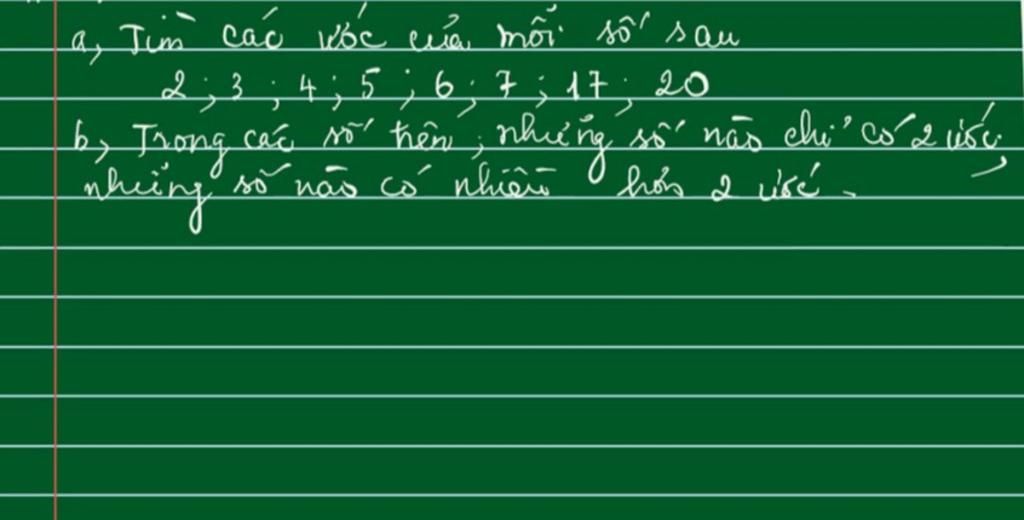 a, Tìm các ước của mỗi số sau
2 ; 3 ; 4 ; 5 ; 6 ; 7 ; 17 ; 20
b, Trong các số trên, những số nào chỉ có 2 ước,
những số nào có nhiều hơn 2 ước.